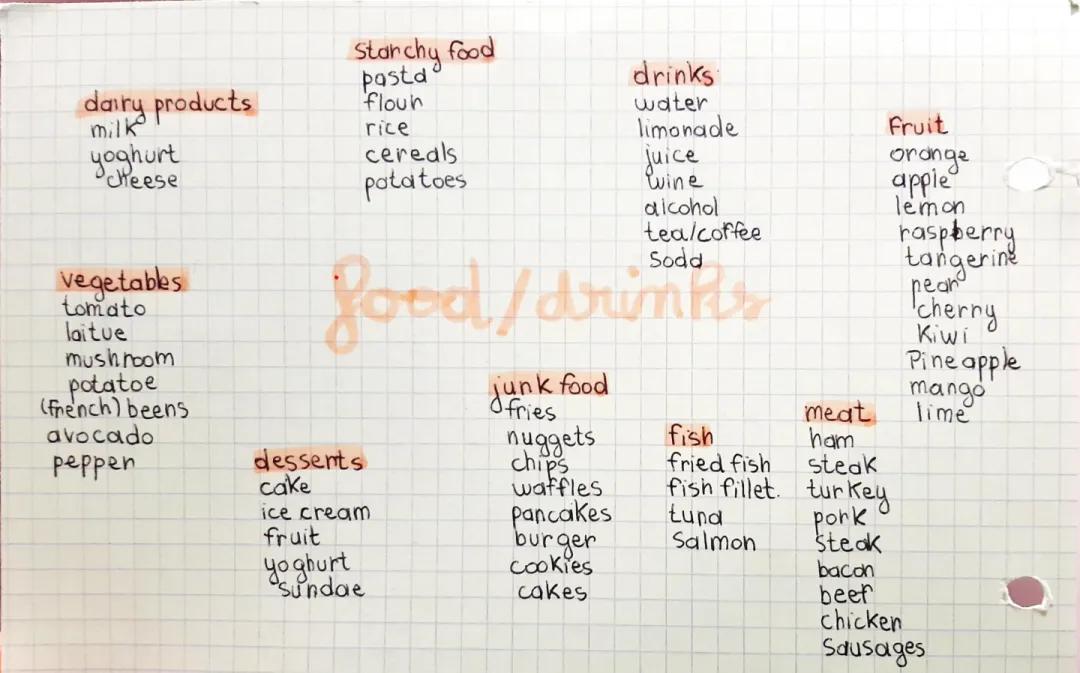 starchy food
pasta
flour
rice
cereals
potatoes
dairy products
milk
yoghurt
cheese
drinks
water
limonade
juice
wine
alcohol
tea/coffee
soda
fruit
orange
apple
lemon
raspberry
tangerine
pear
cherry
kiwi
Pineapple
mango
lime
food/drinks
vegetables
tomato
laitue
mushroom
potatoe
(french) beens
avocado
pepper
desserts
cake
ice cream
fruit
yoghurt
sundae
junk food
fries
nuggets
chips
waffles
pancakes
burger
cookies
cakes
fish
fried fish
fish fillet.
tuna
salmon
meat
ham
steak
turkey
pork
steak
bacon
beef
chicken
sausages